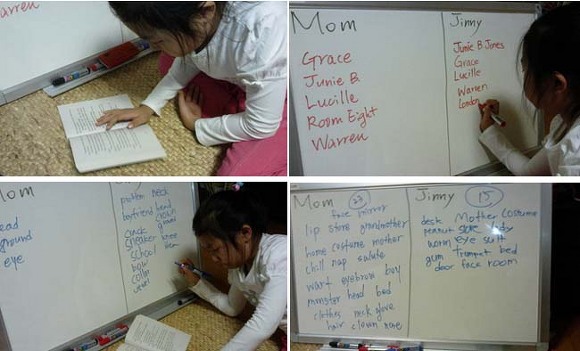 Warren
Mom
Grace
Junie B
Lucille
Room Eight
Warren
Jinny
Junie B Jones
Grace
Lucille
Warren
London
Mom
ead
ground
eye
problem neck
boyfriend head
clown
ground
sneaker knee
school
Mom 27
face mirror
lip store grandmother
home costume mother
chill nap salute
wart eyebrow boy
monster head bed
clothes neck glove
hair clown nose
Jinny 15
desk Mother costume
peanut
worm eye suit
gum trumpet bed
door face room